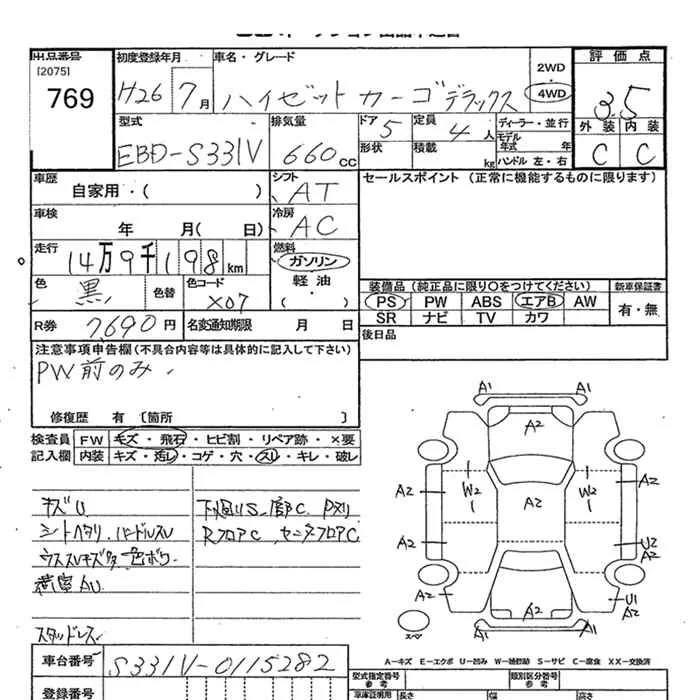 出品番号
[2075]
769
初度登録年月
H26 7月
車名・グレード
ハイゼット カーゴ デラックス
2WD
4WD
評価点
3.5
外装 内装
C C
型式
EBD-S331V
排気量
660cc
ドア 5
定員 4人
ディーラー・並行
モデル年式 年
形状
積載 kg
ハンドル 左・右
車歴
自家用・( )
シフト
AT
セールスポイント (正常に機能するものに限ります)
車検
年 月( 日)
冷房
AC
走行
14万9千198km
燃料
ガソリン
軽油
( ・ )
色
黒
色替
色コード
X07
装備品 (純正品に限り○をつけてください)
新車保証書
PS PW ABS エアB AW
有・無
SR ナビ TV カワ
R券 7,690円
名変通知期限 月 日
後日品
注意事項申告欄(不具合内容等は具体的に記入して下さい)
PW前のみ
修復歴 有 〔箇所 〕
検査員記入欄
FW キズ・飛石・ヒビ割・リペア跡・×要
内装 キズ・汚レ・コゲ・穴・スリ・キレ・破レ
キズU
スタッドレス
A1 A1
A2
A2 W2 1 A2 W2 1 A2
A2 U2 A2
A2 A2 U1 A2
A1 A1
スペ
A-キズ E-エクボ U-凹み W-補修跡 S-サビ C-腐食 XX-交換済
車台番号
S331V-0115282
登録番号
型式指定番号
参考
類別区分番号
参考
車庫証明用
長さ 幅 高さ